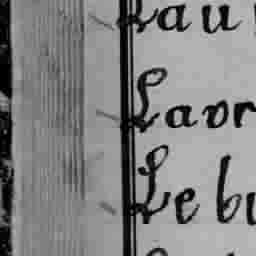 Lau
Laor
Le bu